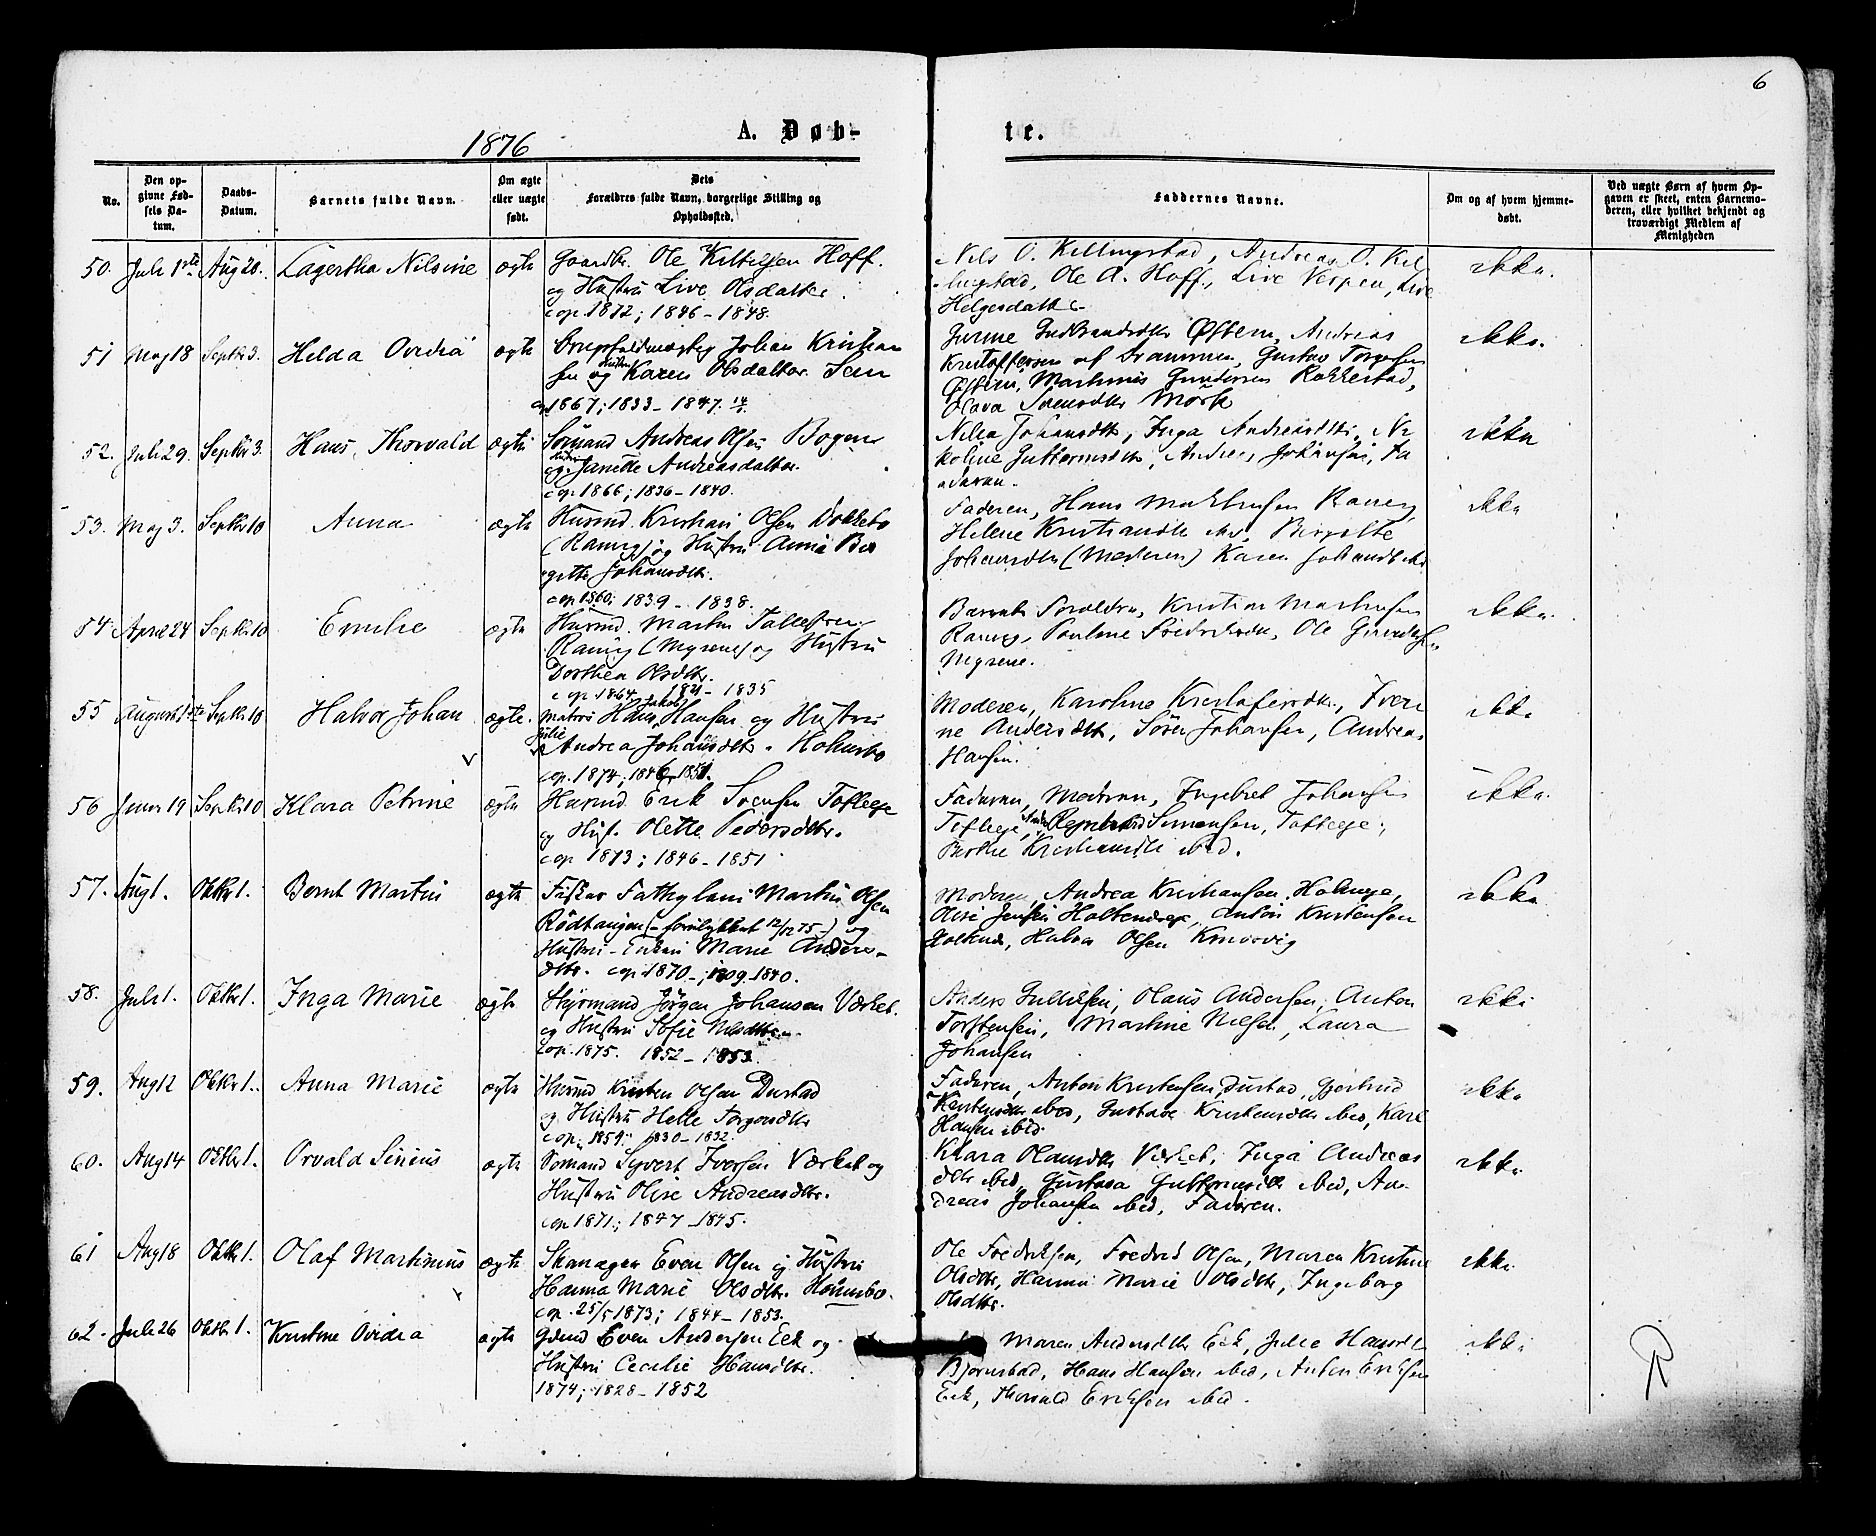 6
1876
A. Døb-
te.
No.
Den op-
givne Fød-
sels Da-
tum.
Daabs-
Datum.
Barnets fulde Navn.
Om ægte
eller uægte
født.
Dets
Forældres fulde Navn, borgerlige Stilling og
Opholdssted.
Faddernes Navne.
Om og af hvem hjemme-
døbt.
Ved uægte Børn af hvem Op-
gaven er skeet, enten Barnemo-
deren, eller hvilket bekjendt og
troværdigt Medlem af
Menigheden
50. Juli 1ste Aug 20. Lagertha Nilsine ægte
Gaardbr. Ole Kittilsen Hoff.
og Hustru Live Olsdatter
cop. 1872; 1846 - 1848.
Nils O. Killingstad, Andreas O. Kil-
lingstad, Ole A. Hoff, Live Vespen, Live
Helgesdatter
ikke.
51 Maj 18 Septbr 3. Hilda Ovidia ægte
Johan Kristian
sen og Hustru Karen Olsdatter Sem
cop 1867; 1833 - 1847.
Gudbrandsdtr Østern, Andreas
Kristoffersen af Drammen, Gustav Torgersen
Østern, Mathias Gundersen Rokkestad,
Olava Svensdtr Mörk
ikke.
52. Juli 29. Septbr 3. Hans Thorvald ægte
Sömand Andreas Olsen Bogen
og Hustru Janette Andreasdatter.
cop 1866; 1836 - 1840.
Nilla Johansdtr, Inga Andreasdtr, Ni-
koline Guttormsdtr, Andreas Johansen, Fa
deren.
ikke
53. Maj 3. Septbr 10 Anna ægte
Husmd. Kristian Olsen Dokkebo
(Ranvig) og Hustru Anna Bir
gitte Johansdtr.
cop 1860; 1839 - 1838.
Faderen, Hans Mathisen Ranvig,
Helene Kristiansdtr ibid, Birgitte
Johansdtr (Moderen) Karen Johansdtr ibid
ikke
54. April 24 Septbr 10 Emilie ægte
Husmd. Martin Tollefsen
Ranvig (Myrene) og Hustru
Dorthea Olsdtr.
cop 1864; 1821 - 1835
Barnets Forældre, Kristian Mathisen
Ranvig, Pauline Fredriksdtr, Ole Gundersen
Myrene.
ikke.
55 August 1ste Septbr 10 Halvor Johan ægte.
Matros Hans Jakob Hansen og Hustru
Julie Andrea Johansdtr. Holmsbo
cop. 1874; 1846 - 1851.
Moderen, Karoline Kristofersdtr, Iver
ne Andersdtr, Sören Johansen, Andreas
Hansen.
ikke
56 Juni 19 Septbr 10 Klara Petrine ægte
Husmd. Erik Svensen Tofteeje
og Hust. Olette Pedersdtr.
cop 1873; 1846 - 1851
Faderen, Moderen, Ingebret Johansen
Tofteeje, Simonsen, Tofteeje,
Berthe Kristiansdtr ibid.
ikke.
57. Aug 1. Oktbr 1. Bernt Martin ægte
Fisker Fattiglem Martin Olsen
Rödtangen (- forulykket 12/12 75 -) og
Hustru - Enken Marie Anders-
dtr. cop. 1870 -; 1809 - 1840.
Moderen, Andrea Kristiansen, Holmeje,
Olise Jensen Holteneje, Anton Kristensen
Holtnes, Halvor Olsen Knivsvig
ikke
58. Juli 1. Oktbr 1. Inga Marie ægte
Styrmand Jörgen Johansen Værket.
og Hustru Sofie Nilsdtr
cop. 1875. 1852 - 1853.
Anders Gulliksen, Olaus Andersen, Anton
Torstensen, Martine Nilsen, Laura
Johansen
ikke
59. Aug 12 Oktbr 1. Anna Marie ægte
Husmd Kristen Olsen Dustad
og Hustru Helle Torgersdtr
cop. 1859; 1830 - 1832.
Faderen, Anton Kristensen Dustad, Gjertrud
Kristensdtr ibid, Gustava Kristensdtr ibid, Karl
Hansen ibid.
ikke
60. Aug 14 Oktbr 1. Orvald Sirius ægte
Sömand Syvert Iversen Værket og
Hustru Olise Andreasdtr.
cop 1871; 1847 - 1845.
Klara Olausdtr Værket, Inga Andreas
dtr ibid, Gustava Guttormsdtr ibid, An-
dreas Johansen ibid, Faderen.
ikke
61 Aug 18 Oktbr 1. Olaf Martinius ægte
Skomager Even Olsen og Hustru
Hanna Marie Olsdtr. Holmsbo.
cop. 25/5 1873; 1844 - 1853.
Ole Fredriksen, Fredrik Olsen, Maren Kristine
Olsdtr, Hanna Marie Olsdtr, Ingeborg
Olsdtr.
ikke
62. Juli 26 Oktbr 1. Kristine Ovidia ægte
Gdmd Even Andersen Eek og
Hustru Cecilie Hansdtr.
1874; 1828 - 1852
Maren Andersdtr Eek, Julie Hansdtr
Bjørnstad, Hans Hansen ibid, Anton Eriksen
Eek, Thorvald Eriksen ibid.
ikke
R